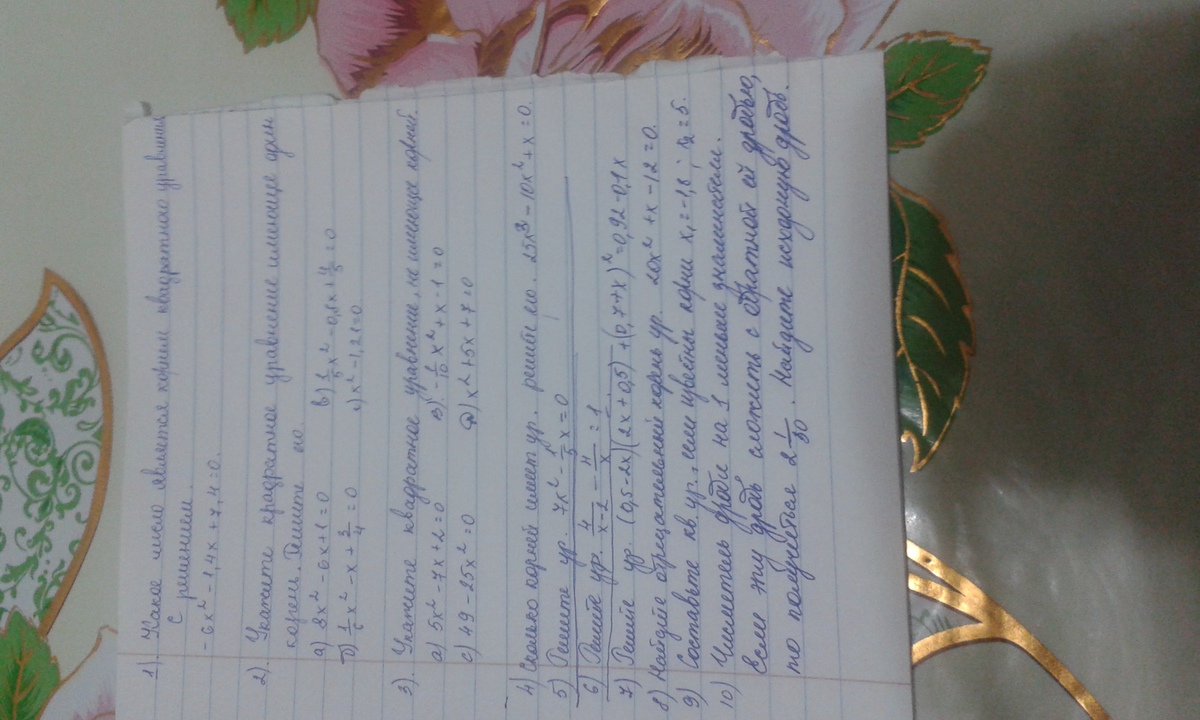 1). Какое число является корнем квадратного уравнения
с решением.
- 6x² - 1,4x + 7,4 = 0.
2) Укажите квадратное уравнение имеющие один
корень. Решите его.
а) 8x² - 6x + 1 = 0 в) 1/5 x² - 0,8x + 4/5 = 0
б) x² - x + 3/4 = 0 г) x² - 1,21 = 0
3) Укажите квадратное уравнение, не имеющее корней.
а) 5x² - 7x + 2 = 0 в) - 1/10 x² + x - 1 = 0
с) 49 - 25x² = 0 д) x² + 5x + 7 = 0
4) Сколько корней имеет ур. решите его. 25x³ - 10x² + x = 0.
5) Решите ур. 7x² - x = 0
6) Решите ур. 4/x-2 - 4/x = 1
7) Решите ур. (0,5 - 2x)(2x + 0,5) + (0,7 + x)² = 0,92 - 0,1x
8) Найдите отрицательный корень ур. 20x² + x - 12 = 0.
9) Составьте кв. ур., если известны корни x₁ = -1,8 ; x₂ = 5.
10) Числитель дроби на 1 меньше знаменателя.
Если эту дробь сложить с обратной ей дробью,
то получится 2 1/30. Найдите исходную дробь.